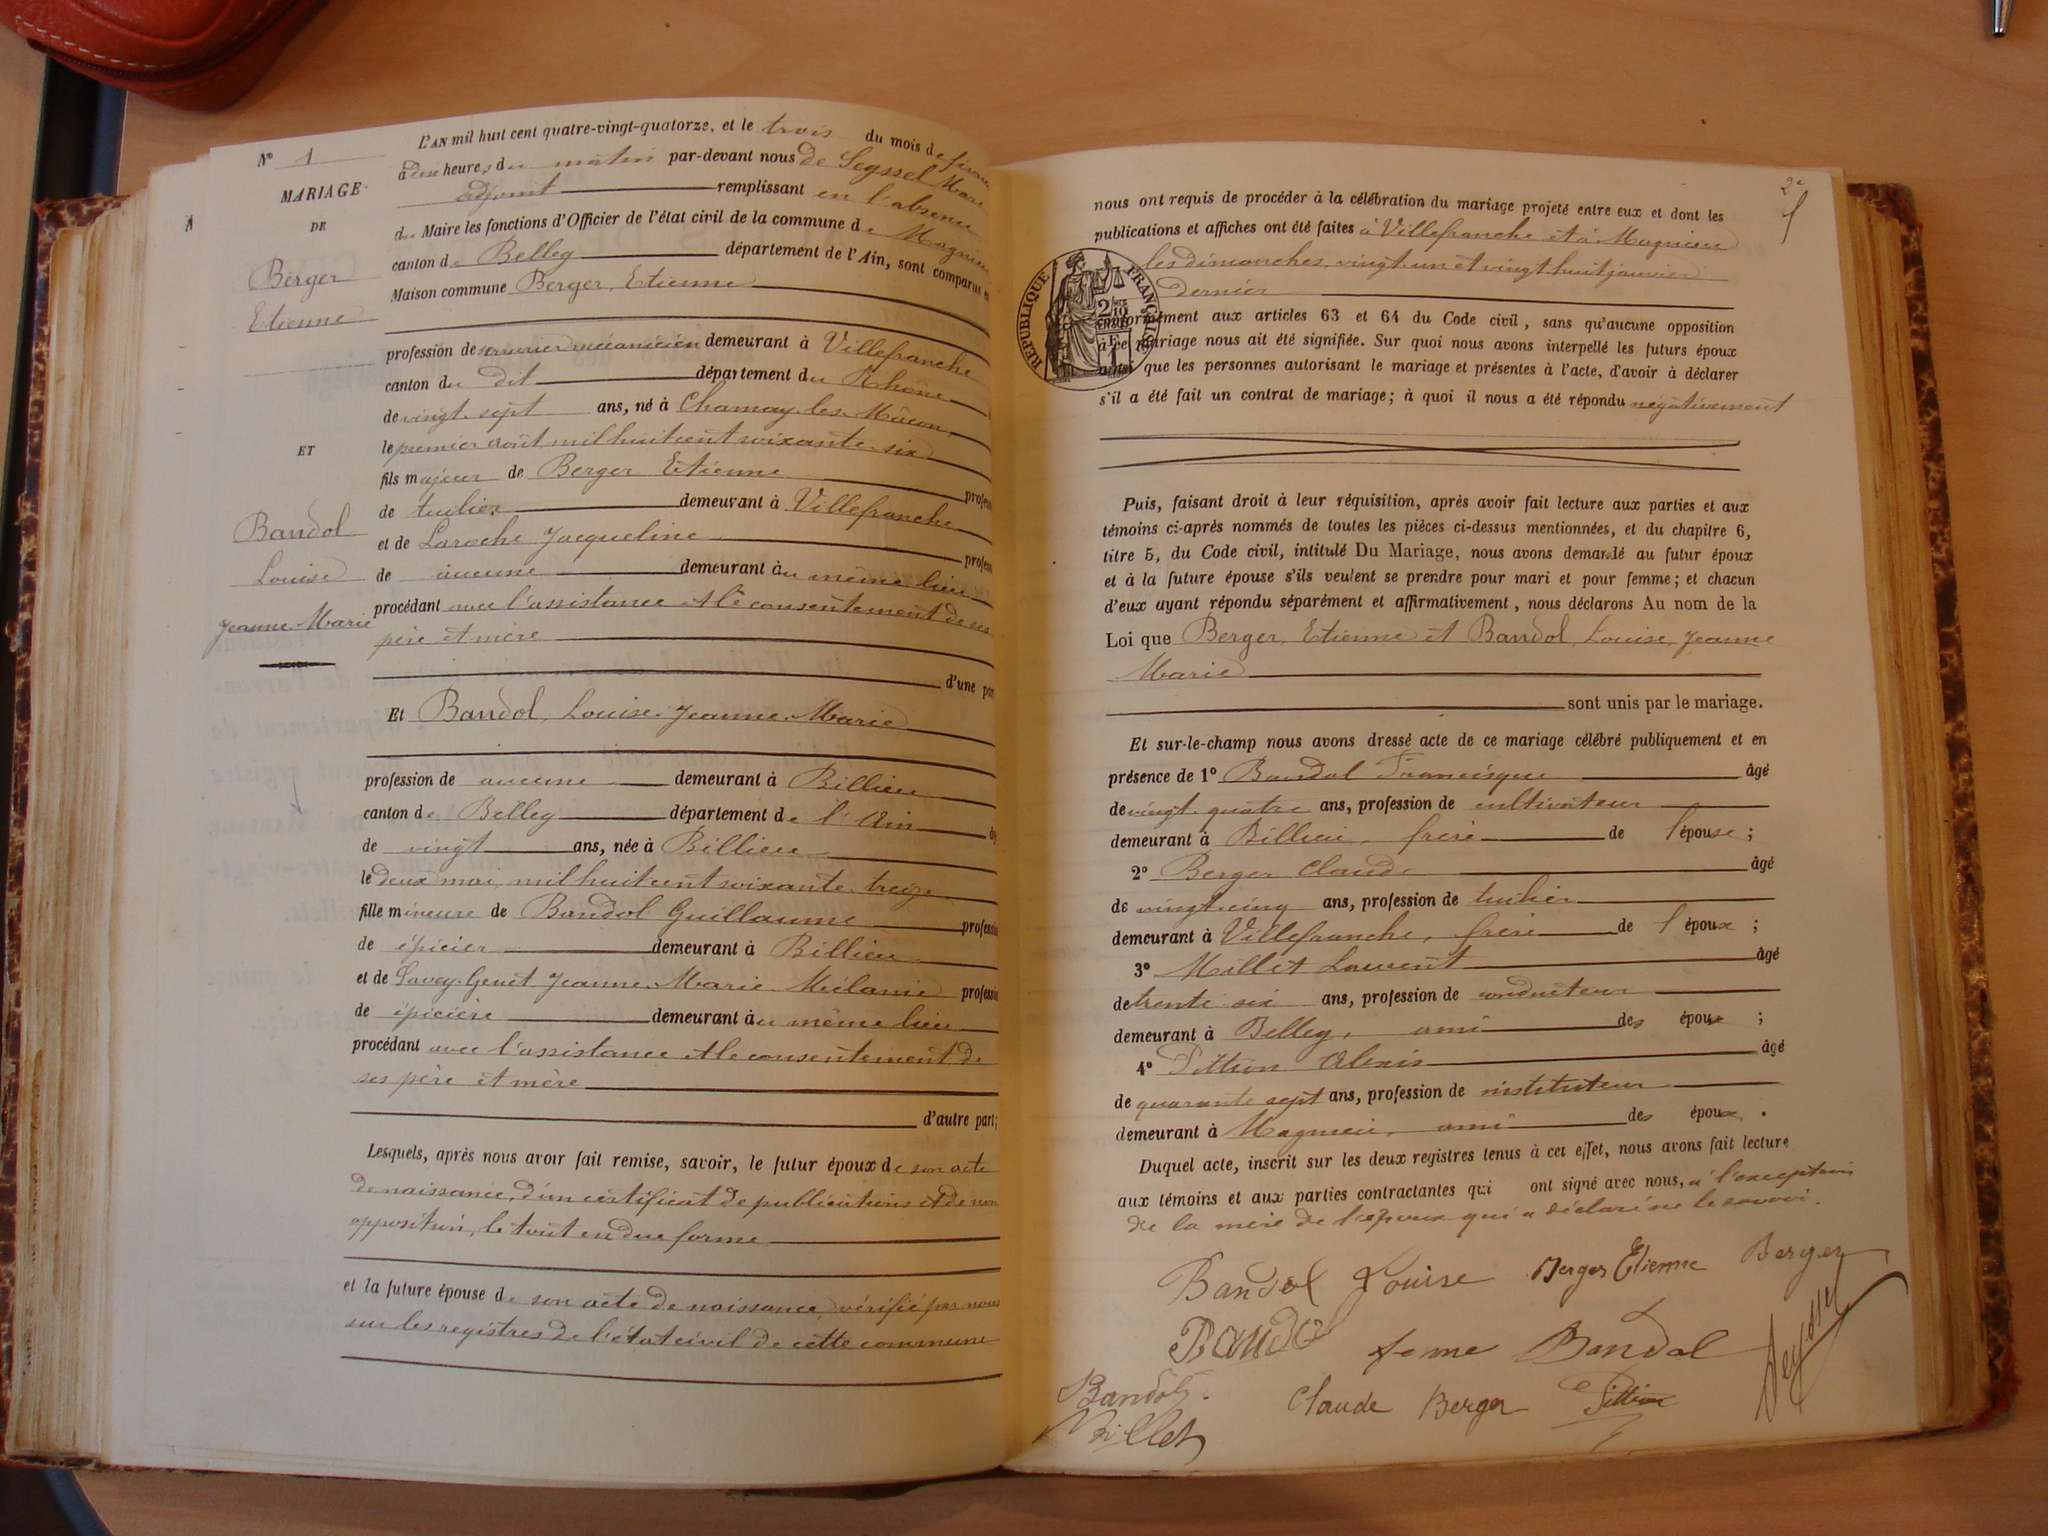 N° 1
MARIAGE
DE
Berger
Etienne
ET
Bandol
Louise
Jeanne Marie
L'AN mil huit cent quatre-vingt-quatorze, et le trois du mois de
à dix heures du matin par-devant nous de Seyssel Marc
adjoint remplissant en l'absence
du Maire les fonctions d'Officier de l'état civil de la commune de Magnieu
canton de Belley département de l'Ain, sont comparus en
Maison commune Berger, Etienne
profession de serrurier mécanicien demeurant à Villefranche
canton du dit département du Rhône
de vingt-sept ans, né à Charnay-les-Mâcon,
le premier août mil huit cent soixante-six
fils majeur de Berger Etienne profess
de tuilier demeurant à Villefranche
et de Laroche Jacqueline profess
de aucune demeurant au même lieu
procédant avec l'assistance et le consentement de ses
père et mère
d'une par
Et Bandol, Louise, Jeanne Marie
profession de aucune demeurant à Billieu
canton de Belley département de l'Ain
de vingt ans, née à Billieu
le deux mai mil huit cent soixante-treize
fille mineure de Bandol Guillaume profession
de épicier demeurant à Billieu
et de Savey-Genet Jeanne Marie Mélanie profession
de épicière demeurant au même lieu
procédant avec l'assistance et le consentement de
ses père et mère
d'autre part;
Lesquels, après nous avoir fait remise, savoir, le futur époux de son acte
de naissance, d'un certificat de publications et de non
opposition, le tout en due forme
et la future épouse de son acte de naissance, vérifié par nous
sur les registres de l'état civil de cette commune
2e
nous ont requis de procéder à la célébration du mariage projeté entre eux et dont les
publications et affiches ont été faites à Villefranche et à Magnieu
les dimanches, vingt-un et vingt-huit janvier
dernier
RÉPUBLIQUE FRANÇAISE
conformément aux articles 63 et 64 du Code civil, sans qu'aucune opposition
à ce mariage nous ait été signifiée. Sur quoi nous avons interpellé les futurs époux
ainsi que les personnes autorisant le mariage et présentes à l'acte, d'avoir à déclarer
s'il a été fait un contrat de mariage; à quoi il nous a été répondu négativement
Puis, faisant droit à leur réquisition, après avoir fait lecture aux parties et aux
témoins ci-après nommés de toutes les pièces ci-dessus mentionnées, et du chapitre 6,
titre 5, du Code civil, intitulé Du Mariage, nous avons demandé au futur époux
et à la future épouse s'ils veulent se prendre pour mari et pour femme; et chacun
d'eux ayant répondu séparément et affirmativement, nous déclarons Au nom de la
Loi que Berger, Etienne et Bandol, Louise, Jeanne
Marie
sont unis par le mariage.
Et sur-le-champ nous avons dressé acte de ce mariage célébré publiquement et en
présence de 1° Bandol Francisque âgé
de vingt-quatre ans, profession de cultivateur
demeurant à Billieu, frère de l'épouse;
2° Berger Claude âgé
de vingt-cinq ans, profession de tuilier
demeurant à Villefranche, frère de l'époux;
3° Millet Laurent âgé
de trente-six ans, profession de conducteur
demeurant à Belley, ami des époux;
4° Pittion Alexis âgé
de quarante-sept ans, profession de instituteur
demeurant à Magnieu, ami des époux.
Duquel acte, inscrit sur les deux registres tenus à cet effet, nous avons fait lecture
aux témoins et aux parties contractantes qui ont signé avec nous, à l'exception
de la mère de l'époux qui a déclaré ne le savoir.
Bandol Louise Berger Etienne Berger
Bandol femme Bandol
Bandol Claude Berger Pittion
Millet